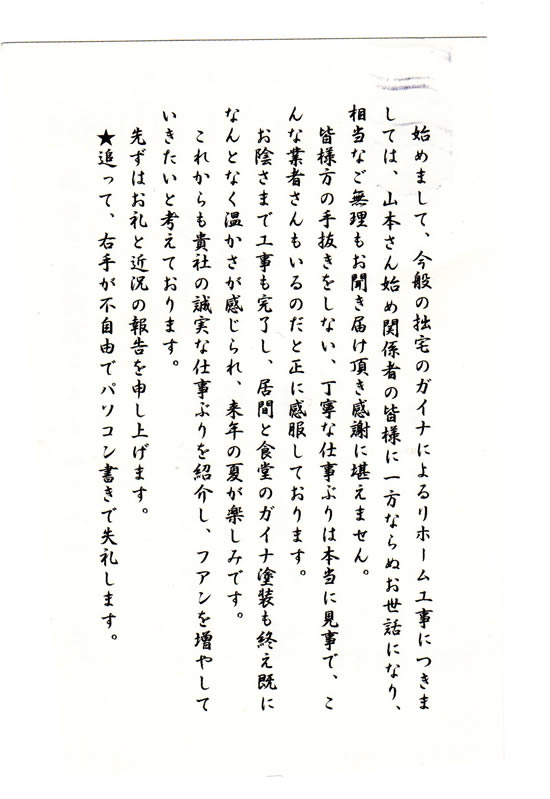 始めまして、今般の拙宅のガイナによるリホーム工事につきま
しては、山本さん始め関係者の皆様に一方ならぬお世話になり、
相当なご無理もお聞き届け頂き感謝に堪えません。
皆様方の手抜きをしない、丁寧な仕事ぶりは本当に見事で、こ
んな業者さんもいるのだと正に感服しております。
お陰さまで工事も完了し、居間と食堂のガイナ塗装も終え既に
なんとなく温かさが感じられ、来年の夏が楽しみです。
これからも貴社の誠実な仕事ぶりを紹介し、フアンを増やして
いきたいと考えております。
先ずはお礼と近況の報告を申し上げます。
★追って、右手が不自由でパソコン書きで失礼します。